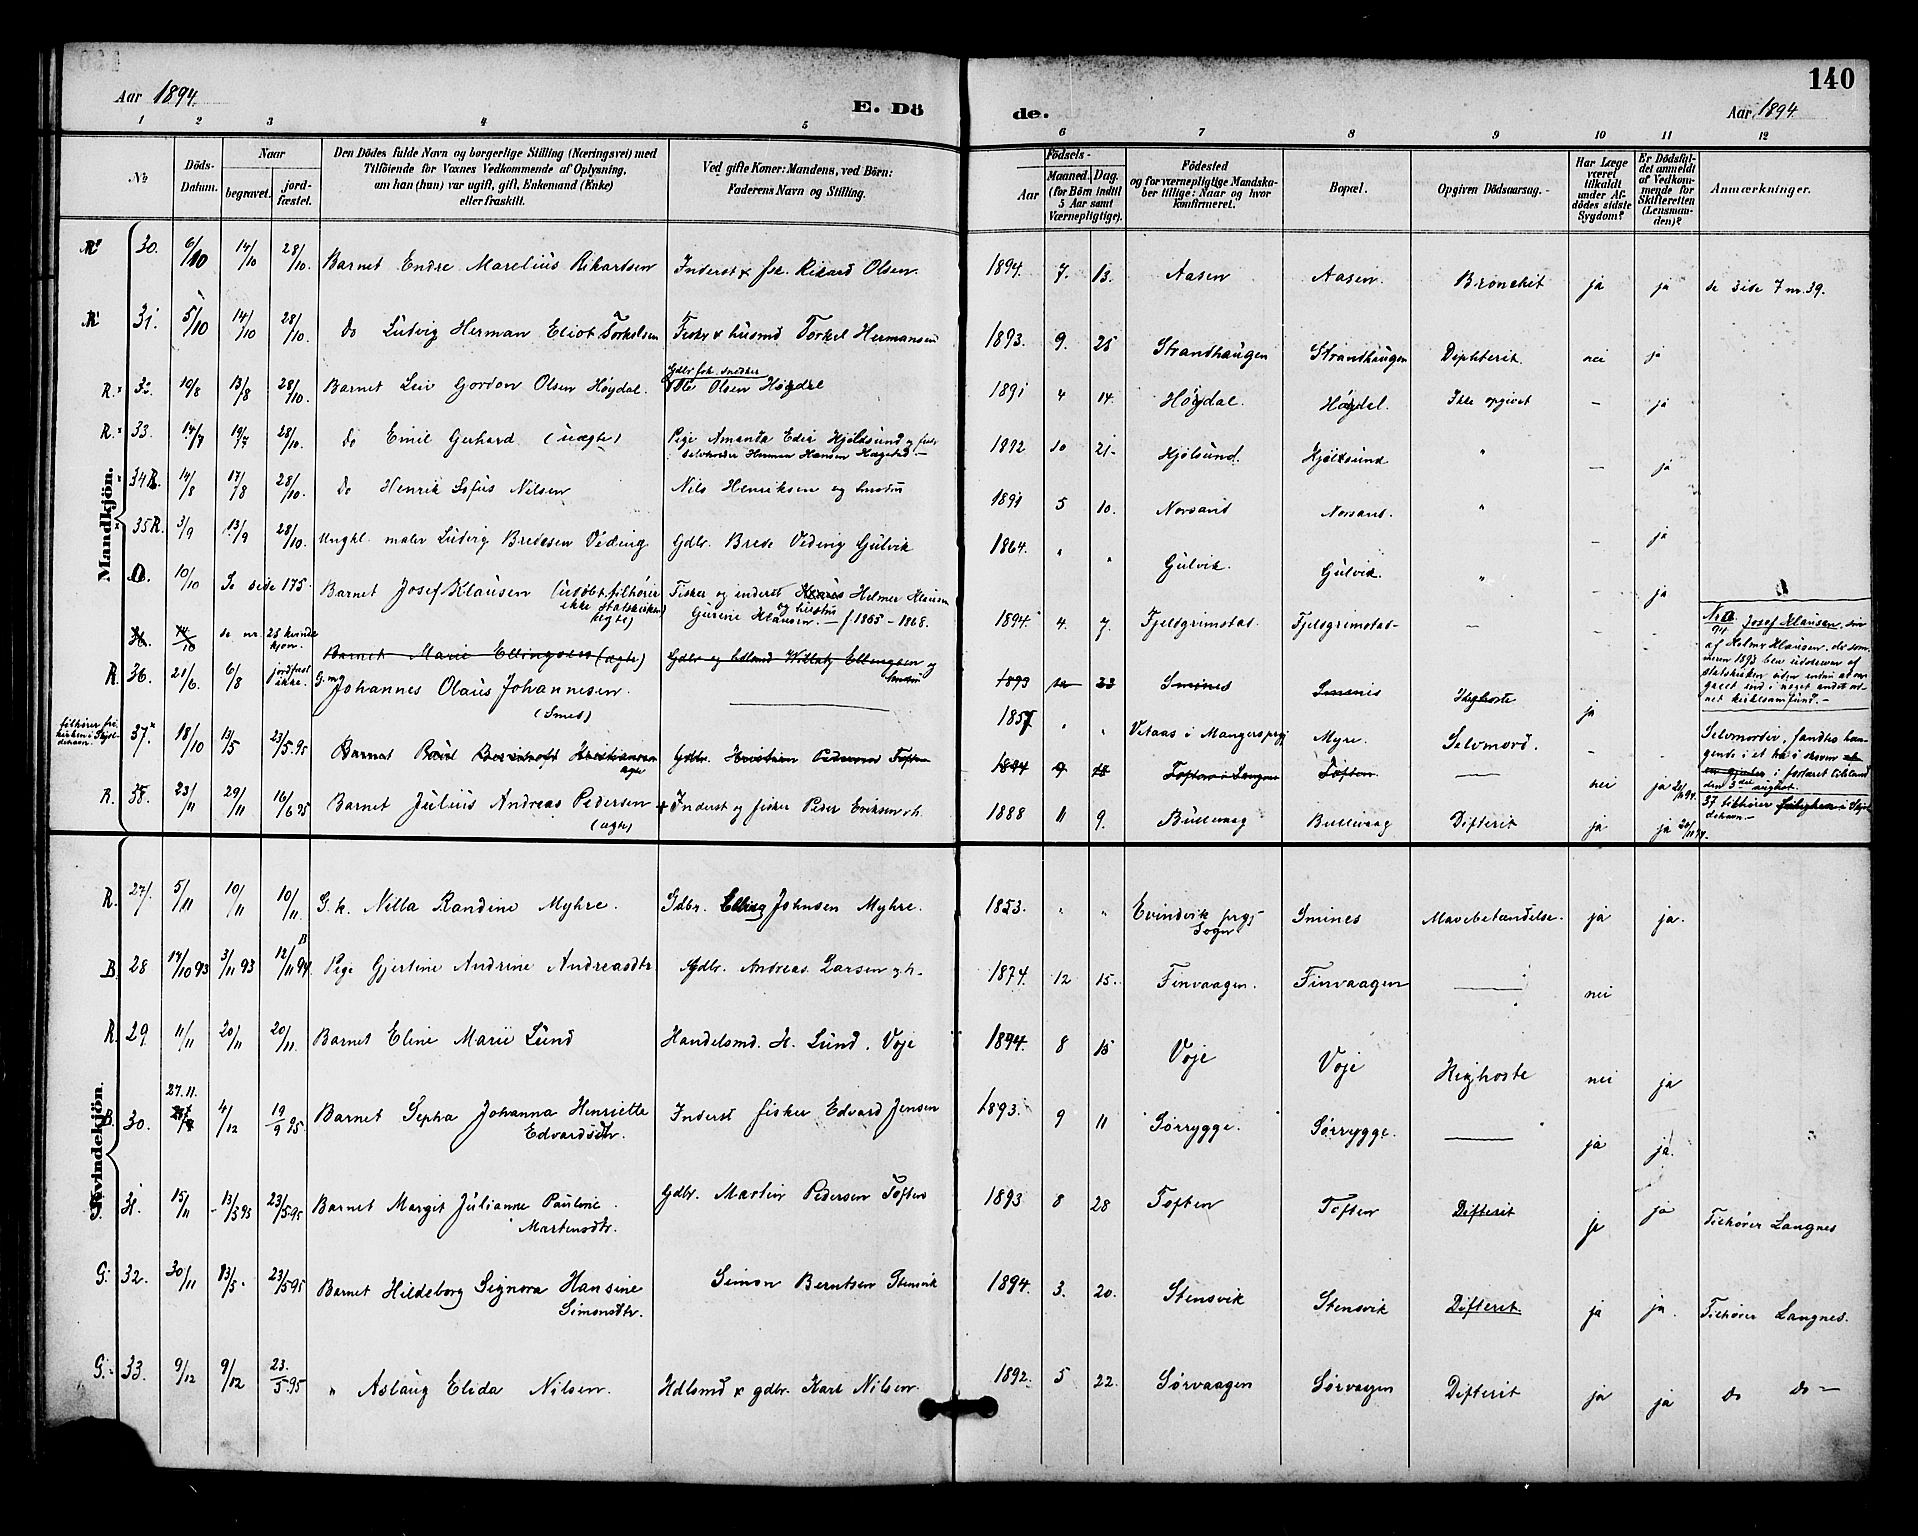 140
Aar 1894. E. Dö de. Aar 1894.
1 2 3 4 5 6 7 8 9 10 11 12
№ Döds-Datum. Naar begravet. jord-fæstet. Den Dödes fulde Navn og borgerlige Stilling (Næringsvei) med Tilföiende for Voxnes Vedkommende af Oplysning, om han (hun) var ugift, gift, Enkemand (Enke) eller fraskilt. Ved gifte Koner: Mandens, ved Börn: Faderens Navn og Stilling. Födsels- Aar Maaned. Dag. (for Börn indtil 5 Aar samt Værnepligtige). Födested og for værnepligtige Mandska-ber tillige: Naar og hvor konfirmeret. Bopæl. Opgiven Dödsaarsag. Har Læge været tilkaldt under Af-dödes sidste Sygdom? Er Dödsfal-det anmeldt af Vedkom-mende for Skifteretten (Lensman-den)? Anmærkninger.
Mandkjön.
30. 6/10 14/10 28/10. Barnet Endre Marelius Rikardsen Inderst & fsk. Rikard Olsen. 1894. 7. 13. Aasen Aasen. Bronchit ja ja se side 7 nr. 39.
31. 5/10 14/10 28/10. do Ludvig Herman Eliot Torkelsen Fisker & husmd Torkel Hermansen 1893. 9. 25 Strandhaugen Strandhaugen Diphterit. nei ja
R. 32. 10/8 13/8 28/10. Barnet Leir Gordon Olsen Høydal. Gdbr fsk. snedker Ole Olsen Høydal 1891 4 14. Høydal. Høydal. Ikke opgivet — ja
R. 33. 14/7 19/7 28/10. do Emil Gerhard (uægte) Pige Amanda Edia Hjøldsund og Selveier Herman Hansen 1892 10 21. Hjølsund. Hjølsund " — ja
34 R. 14/8 17/8 28/10. do Henrik Sofus Nilsen Nils Henriksen og hustru 1891 5 10. Norsand Norsand. "
35 R. 3/9 13/9 28/10. Ungkl. maler Ludvig Bredesen Veding Gdbr. Brede Veding Gulvik 1864. " " Gulvik. Gulvik. " — ja
0. 10/10 Se side 175. Barnet Josef Klausen (udøbt tilhører ikke statskirken) ægte) Fisker og inderst Helmer Klausen og hustru Gurine Klausen. — f. 1865 - 1868. 1894 4. 7. Fjeldgrimstad. Fjeldgrimstad — — ja
36 14/10 se nr. 25 kvinde kjøn. Barnet Marie Ellingsen (ægte) Gdbr og Willatz Ellingsen og hustru 1893 23 Smines Smines Kighoste
R. 36. 21/6. 6/8 jordfæst ikke. G.m. Johannes Olaus Johannesen. (Smed) 1857 " " Vetaas i Mangers prgj Myre. Selvmord. ja
tilhører fri kirken i Skjoldehavn. 37. 18/10 13/5 23/5.95 Barnet Kristiansen ægte Gdbr. Kristian Pedersen Toften 1894 Toften i Langnes Toften — nei ja
R. 38. 23/11 29/11 16/6 95 Barnet Julius Andreas Pedersen (ægte) Inderst og fisker Peder Eriksen & h. 1888 11 9. Bulluvaag Bulluvaag Difterit ja ja 20/11 94.
Josef Klausen, søn af Helmer Klausen, der sommeren 1893 blev uddøver af statskirken uden endnu at være gaaet ind i noget andet ordnet kirkesamfund. —
Selvmorder, fandtes hængende i et træ i skoven i fortøiet tilstand den 3die august.
37 tilhører frikirken i Skjoldehavn. —
Kvindekjön.
R. 27. 5/11 10/11 10/11. G. k. Nilla Randine Myhre. Gdbr. Elling Johnsen Myhre. 1853. " " Evindvik prgj Sogn. Smines Mavebetændelse. ja ja.
B. 28 14/10 93 3/11 93 12/11 94. Pige Gjertine Andrine Andreasdtr Gdbr. Andreas Larsen & h. 1874. 12 15. Finvaagen. Finvaagen — nei
R. 29 11/11 20/11 20/11. Barnet Eline Marie Lund Handelsmd. H. Lund. Voje 1894. 8 15 Voje Voje Kighoste nei ja
B. 30. 27.11. 4/12 19/9 95. Barnet Sepha Johanna Henriette Edvardsdtr. Inderst fisker Edvard Jensen 1893. 9 11 Sørrygge. Sørrygge. — ja ja.
G. 31. 15/11 13/5 95 23/5 95 Barnet Margit Julianne Pauline Martensdtr. Gdbr. Martin Pedersen Toften 1893 8 28 Toften Toften Difterit ja ja Tilhører Langnes
G. 32. 30/11 13/5. 23/5 95 Barnet Hildeborg Signora Hansine Simonsdtr. Simon Berntsen Stensvik 1894. 3. 20. Stensvik Stensvik Difterit. ja ja. Tilhører Langnes.
G. 33. 9/12 9/12 23/5 95 " Aslaug Elida Nilsen. Hdlsmd & gdbr. Karl Nilsen. 1892. 5 22. Sørvaagen Sørvaagen Difterit ja ja do do —